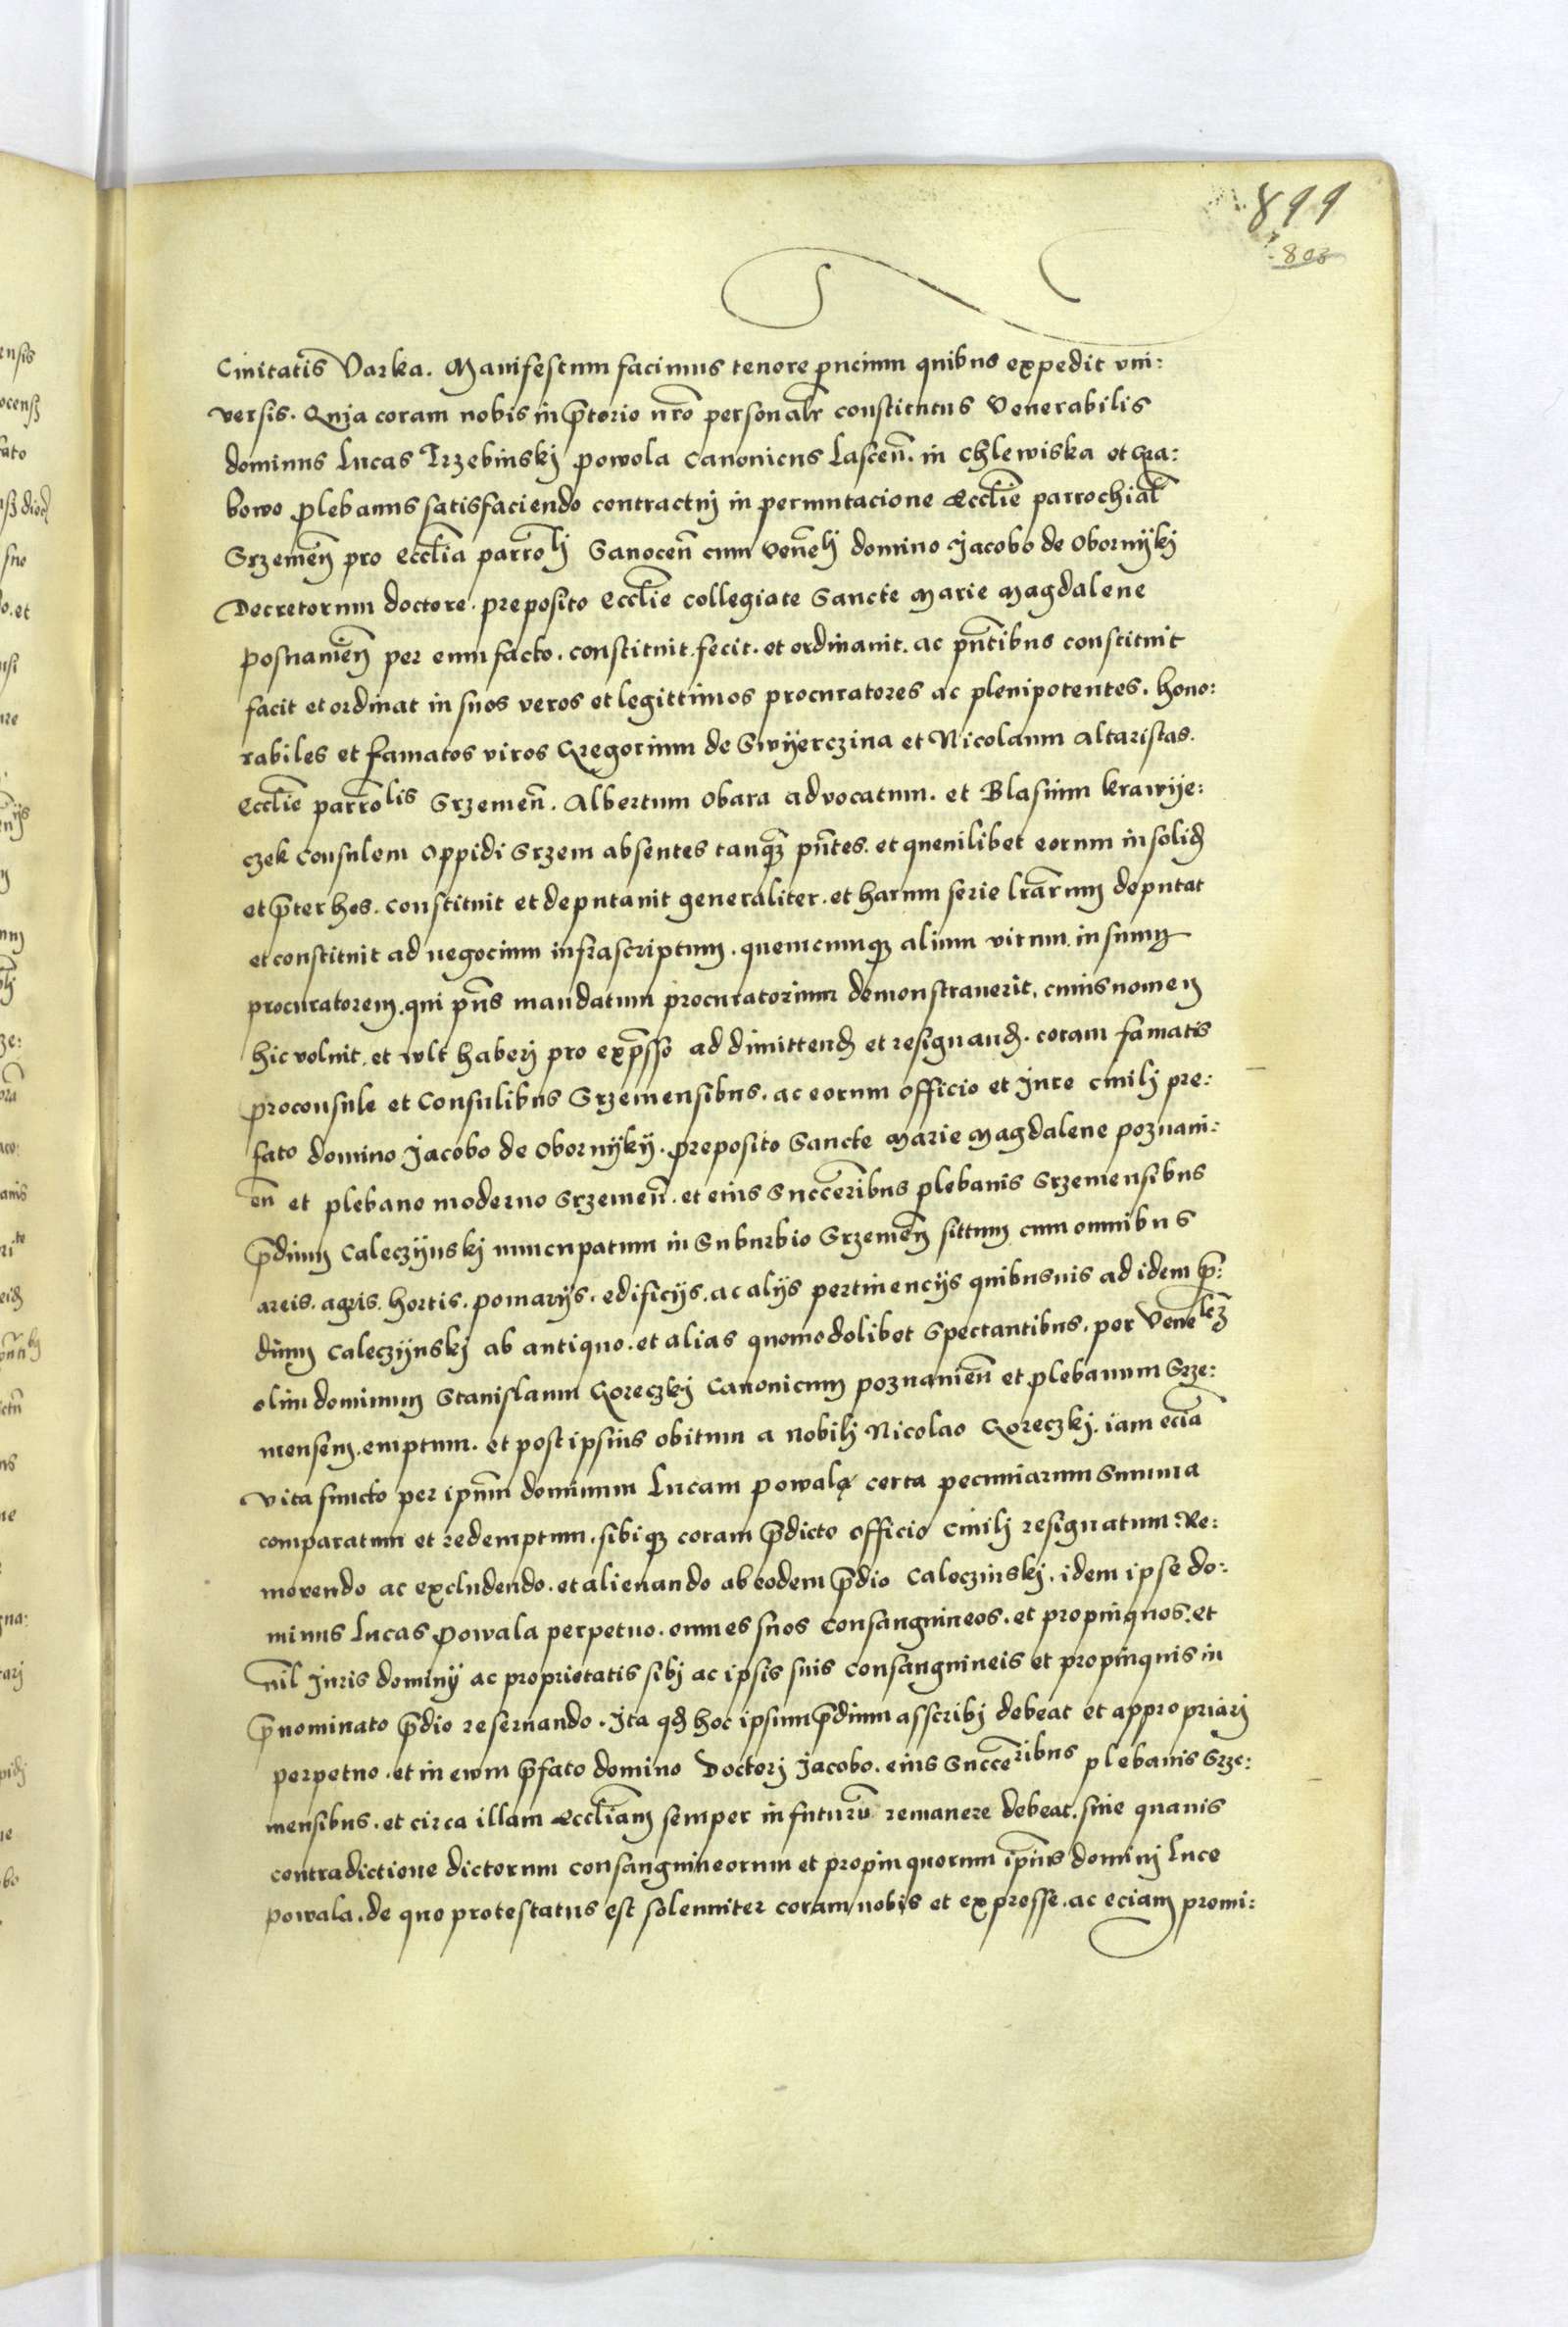 899
803
Ciuitatis Varka. Manifestum facimus tenore pñcium quibus expedit vni:
versis. Quia coram nobis in p̃torio nr̃o personalr̃ constitutus Venerabilis
dominus Lucas Trzebinskj powola Canonicus Lasceñ. in Chlewiska et Gra:
bowo plebanus satisfaciendo contractuj in permutacione Eccl̃ie parrochial̃
Srzemeñ pro eccl̃ia parrõlj Sanoceñ cum Veñelj domino Jacobo de Obornÿkj
Decretorum doctore. preposito Eccl̃ie collegiate Sancte Marie Magdalene
posnanieñ per eum facto. constituit fecit. et ordinauit. ac pñtibus constituit
facit et ordinat in suos veros et legittimos procuratores ac plenipotentes. hono:
rabiles et famatos viros Gregorium de Swÿerczina et Nicolaum altaristas.
Eccl̃ie parrõlis Srzemeñ. Albertum Obara advocatum. et Blasium krawÿe:
czek Consulem Oppidi Srzem absentes tanq̃ pñtes. et quemlibet eorum insolid̃
et p̃ter hos. constituit et deputauit generaliter. et harum serie lrãrum deputat
et constituit ad negocium infrascriptum. quemcumq̃ alium virum in suum
procuratorem. qui pñs mandatum procuratorium demonstrauerit, cuius nomen
hic voluit, et vult haberj pro exp̃sso ad dimittend̃ et resignand̃. coram famatis
proconsule et Consulibus Srzemensibus. ac eorum officio et Jure ciuilj pre:
fato domino Jacobo de Obornÿkÿ. preposito Sancte Marie Magdalene poznani:
eñ et plebano moderno Srzemeñ. et eius Succeribus plebanis Srzemensibus
p̃dium Caleczÿnskj nuncupatum in Suburbio Srzemeñ sittum cum omnibus
areis. agris. hortis. pomarÿs. edificÿs. ac alÿs pertinencÿs quibusuis ad idem p̃:
dium Caleczÿnskj ab antiquo. et alias quomodolibet Spectantibus. per Venelem
olim dominum Stanislaum Goreczkj Canonicum poznanieñ et plebanum Srze:
mensem. emptum. et post ipsius obitum a nobilj Nicolao Goreczkj. iam ecia
vita functo per ipm̃ dominum Lucam powalę certa pecuniarum Summa
comparatum et redemptum. sibiq̃ coram p̃dicto officio Ciuilj resignatum: Re:
morendo ac excludendo. et alienando ab eodem p̃dio Caleczinskj. idem ipse do:
minus Lucas powala perpetuo. omnes suos Consanguineos. et propinquos, et
nil Juris dominÿ ac proprietatis sibj ac ipsis suis Consanguineis et propinquis in
p̃nominato p̃dio reseruando. Jta qd̃ hoc ipsum p̃dium asscribj debeat et appropriarj
perpetuo. et in ewm p̃fato domino Doctorj Jacobo. eius Succeribus plebanis Srze:
mensibus. et circa illam Eccl̃iam semper in futurũ remanere debeat. sine quauis
contradictione dictorum consanguineorum et propinquorum ipĩus dominj Luce
powala. de quo protestatus est solenniter coram nobis et expresse. ac eciam promi: